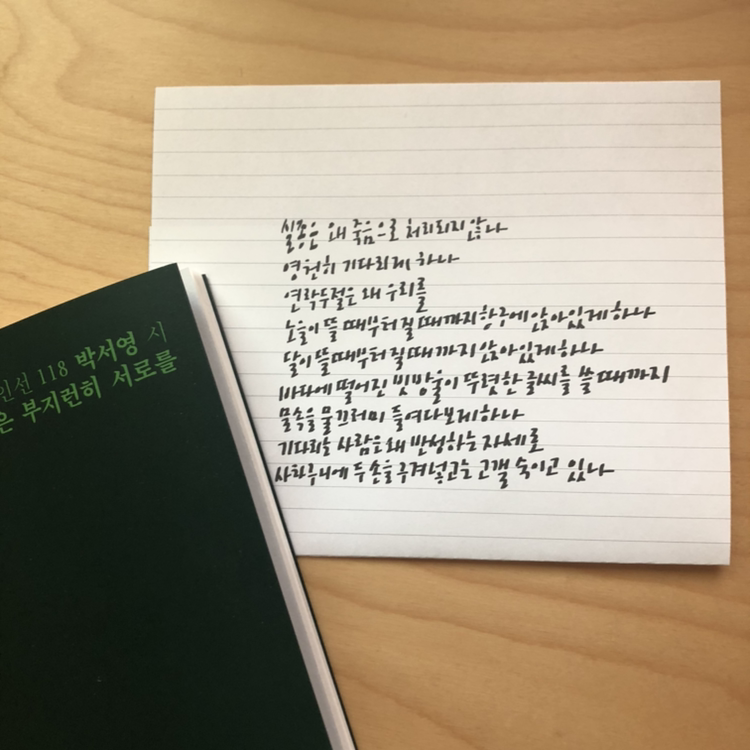 인선 118 박서영 시
은 부지런히 서로를
실종은 왜 죽음으로 처리되지 않나
영원히 기다리게 하나
연락두절은 왜 우리를
노을이 뜰 때부터 질 때까지 항구에 앉아있게 하나
달이 뜰 때부터 질 때까지 앉아있게 하나
바다에 떨어진 빗방울이 뚜렷한 글씨를 쓸 때까지
물속을 물끄러미 들여다보게 하나
기다리는 사람은 왜 반성하는 자세로
사타구니에 두 손을 구겨넣고는 고갤 숙이고 있나